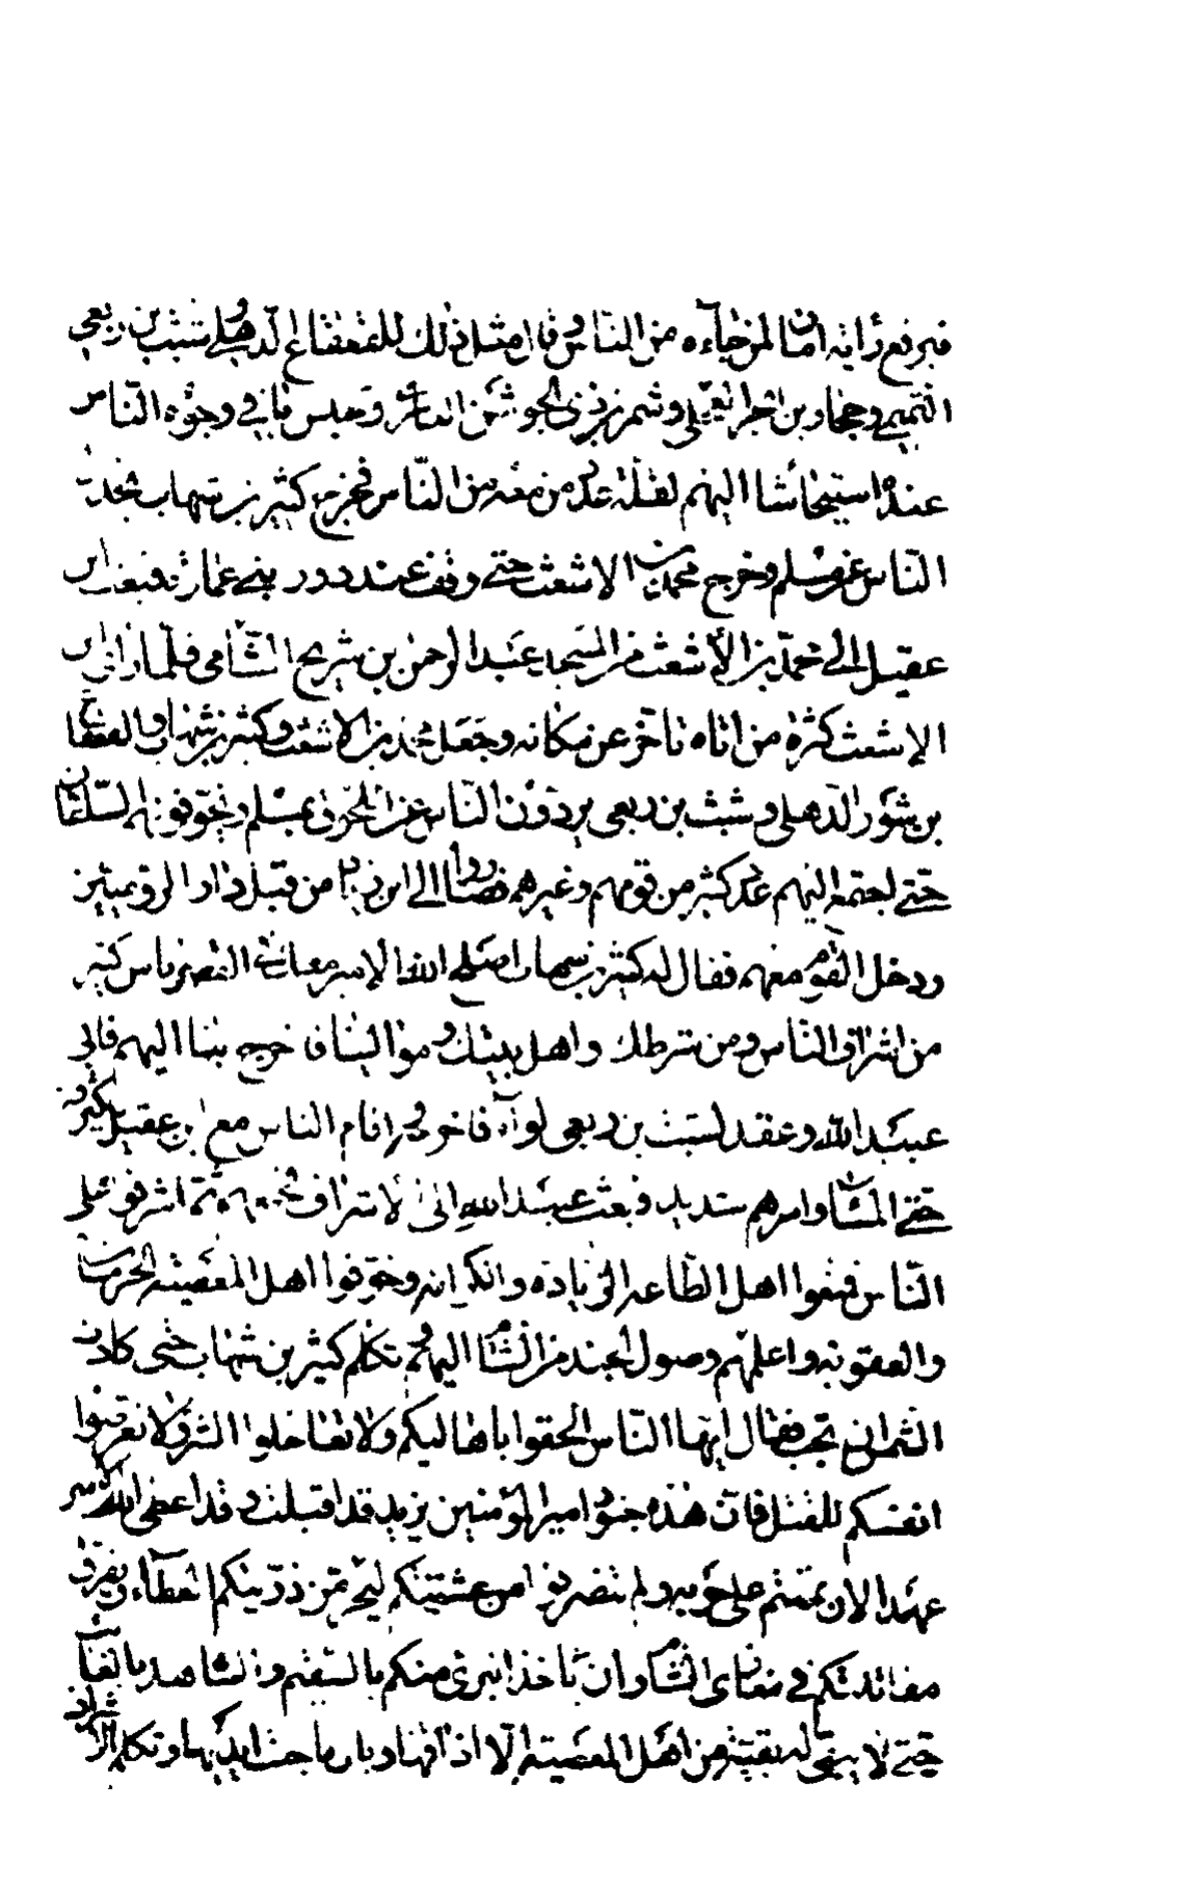 فيرفع راية امان لمن جاءه من الناس وقال مثل ذلك للقعقاع الذهلي وشبث بن ربعي
التميمي وحجار بن ابجر العجلي وشمر بن ذي الجوشن العامري وحبس باقي وجوه الناس
عنده استيحاشا اليهم لقلة عدد من معه من الناس فخرج كثير بن شهاب يخذل
الناس عن مسلم وخرج محمد بن الاشعث حتى وقف عند دور بني عمارة فبعث ابن
عقيل الى محمد بن الأشعث من المسجد عبد الرحمن بن شريح الشامي فلما راى ابن
الاشعث كثرة من اتاه تاخر عن مكانه وجعل محمد بن الاشعث وكثير بن شهاب والقعقاع
بن شور الذهلي وشبث بن ربعي يردون الناس عن اللحوق بمسلم ويخوفونهم السلطان
حتى اجتمع اليهم عدد كثير من قومهم وغيرهم فصاروا الى ابن زياد من قبل دار الروميين
ودخل القوم معهم فقال له كثير بن شهاب اصلح الله الامير معك في القصر ناس كثير
من اشراف الناس ومن شرطك واهل بيتك ومواليك فاخرج بنا اليهم فابى
عبيد الله وعقد لشبث بن ربعي لواء فاخرجه واقام الناس مع ابن عقيل يكثرون
حتى المساء وامرهم شديد فبعث عبيد الله الى الاشراف فجمعهم ثم اشرفوا على
الناس فمنوا اهل الطاعة الزيادة والكرامة وخوفوا اهل المعصية الحرمان
والعقوبة واعلموهم وصول الجند من الشام اليهم وتكلم كثير بن شهاب حتى كادت
الشمس ان تجب فقال ايها الناس الحقوا باهاليكم ولا تعجلوا الشر ولا تعرضوا
انفسكم للقتل فان هذه جنود امير المؤمنين يزيد قد اقبلت وقد اعطى الله الامير
عهدا لان تممتم على حربه ولم تنصرفوا من عشيتكم ليحرمن ذريتكم العطاء ويفرق
مقاتلتكم في مغازي الشام وان ياخذ البرئ منكم بالسقيم والشاهد بالغائب
حتى لا يبقى له بقية من اهل المعصية إلا اذاقها وبال ما جنت ايديها وتكلم الاشراف